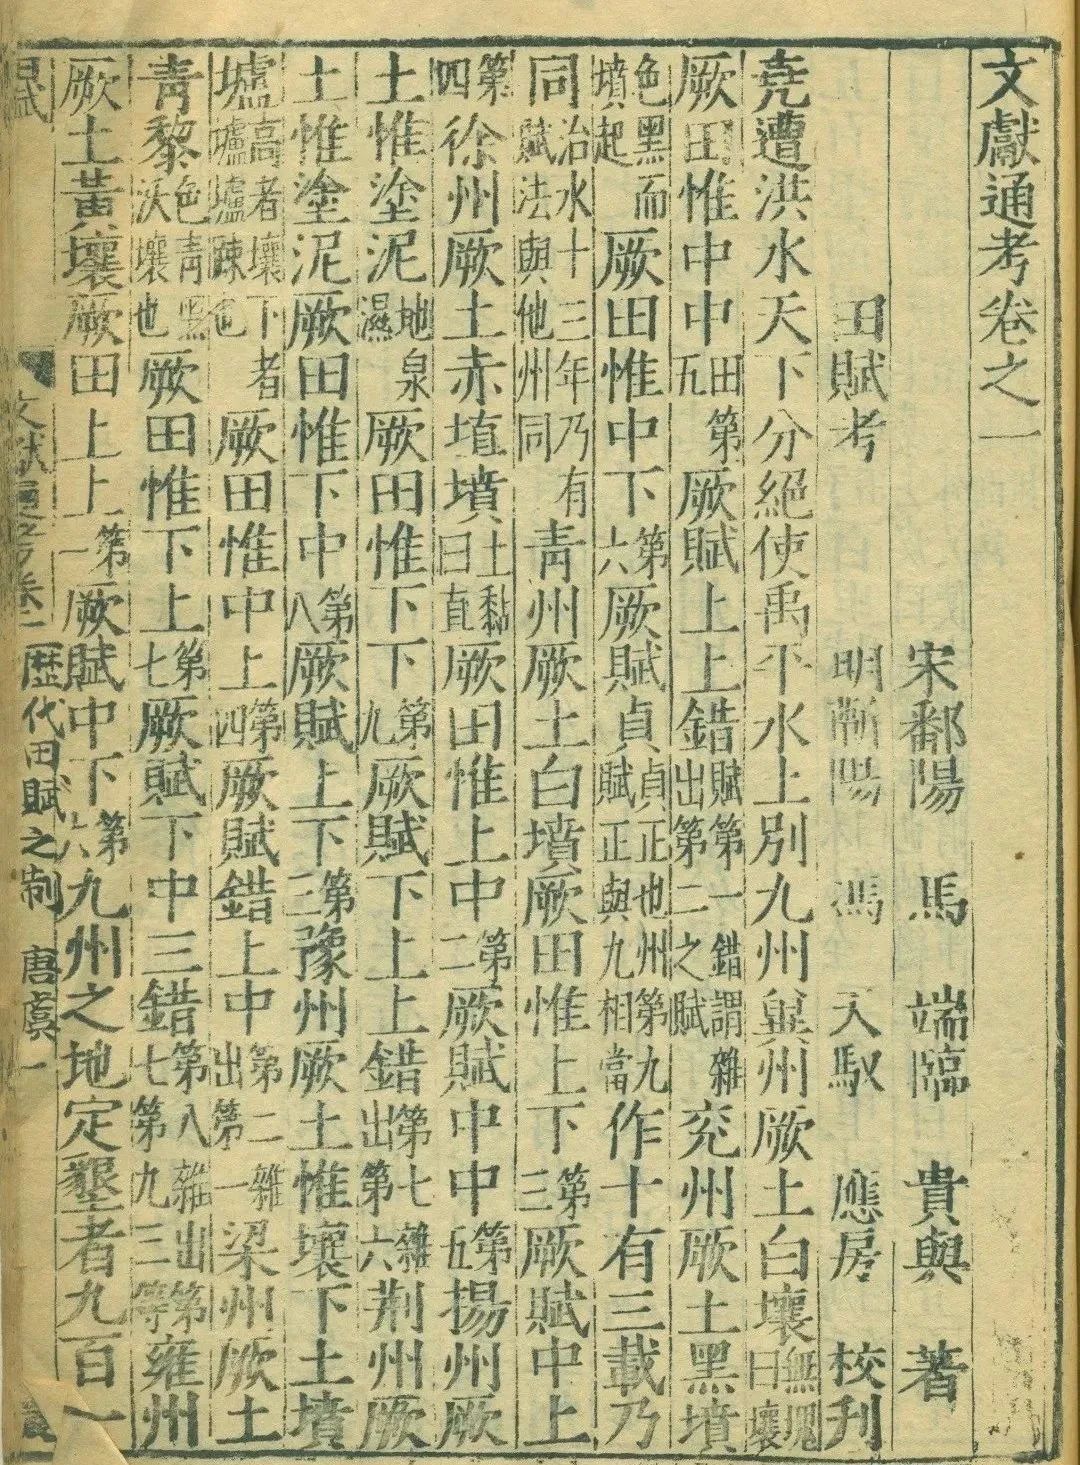 文獻通考卷之一
宋鄱陽 馬 端臨 貴與 著
田賦考 明 陽 馮 天馭 應房 校刋
堯遭洪水天下分絕使禹平水土別九州冀州厥土白壤無塊曰壤
厥田惟中中田第五厥賦上上錯賦第一錯謂雜出第二之賦兖州厥土黑墳
色黑而墳起厥田惟中下第六厥賦貞貞正也州第九賦正與九相當作十有三載乃
同治水十三年乃有賦法與他州同青州厥土白墳厥田惟上下第三厥賦中上
第四徐州厥土赤埴墳土黏曰埴厥田惟上中第二厥賦中中第五揚州厥
土惟塗泥地泉濕厥田惟下下第九厥賦下上上錯第七雜出第六荆州厥
土惟塗泥厥田惟下中第八厥賦上下第三豫州厥土惟壤下土墳
壚高者壤下者壚壚疎也厥田惟中上第四厥賦錯上中第二雜出第一梁州厥土
青黎色青黑沃壤也厥田惟下上第七厥賦下中三錯第八雜出第七第九三等雍州
厥土黃壤厥田上上第一厥賦中下第六九州之地定墾者九百一
文獻通考卷一 歷代田賦之制 唐虞 一